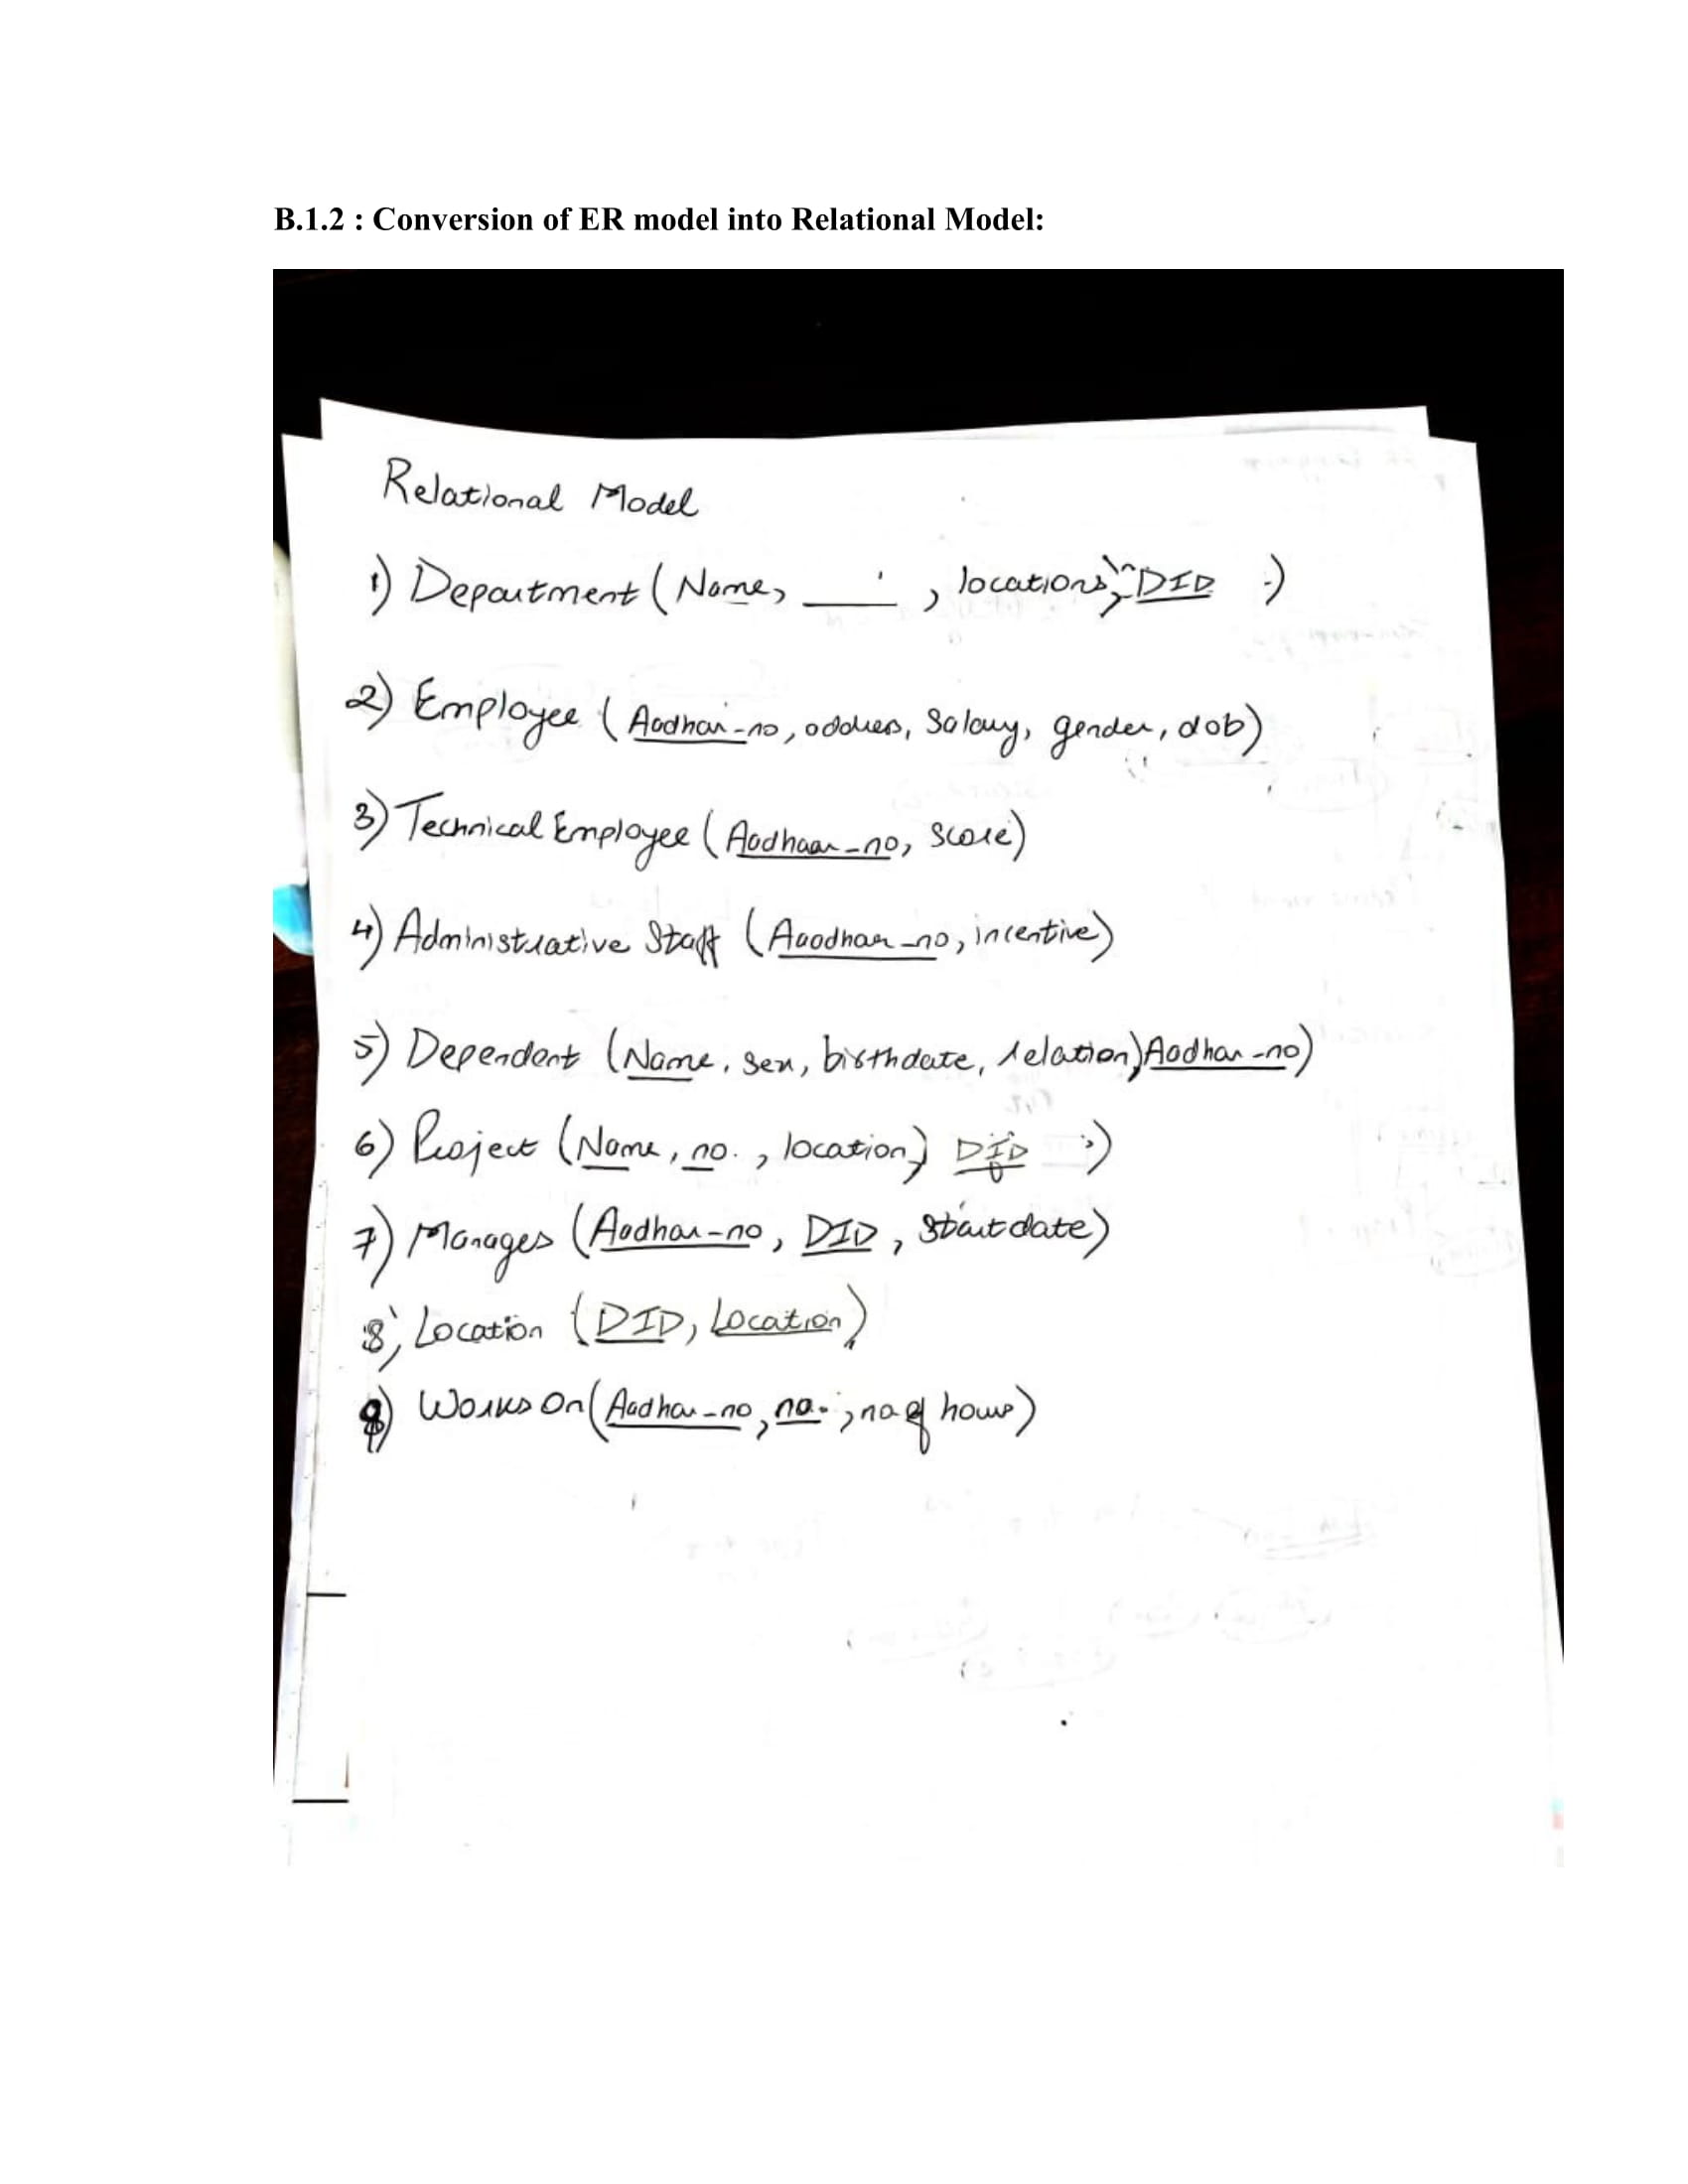 B.1.2 : Conversion of ER model into Relational Model:
Relational Model
1) Department (Name, ____ , locations, DID )
2) Employee (Aadhar-no, address, Salary, gender, dob)
3) Technical Employee (Aadhaar-no, score)
4) Administrative Staff (Aaadhar-no, incentive)
5) Dependent (Name, sex, birthdate, relation, Aadhar-no)
6) Project (Name, no., location) DID )
7) Manages (Aadhar-no, DID, Start date)
8) Location (DID, Location)
9) Works On (Aadhar-no, no., no of hours)